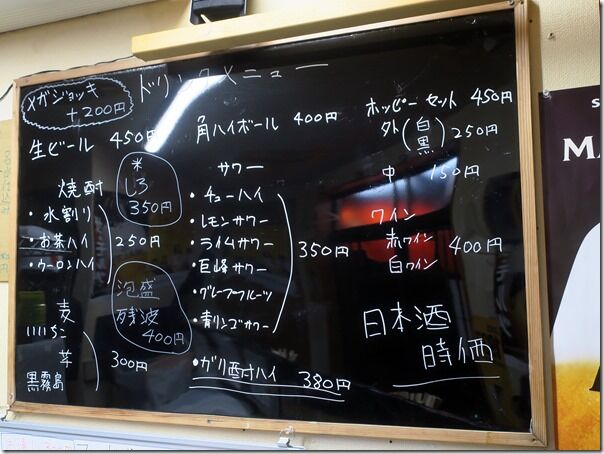 ドリンクメニュー
メガジョッキ
+200円
生ビール 450円
焼酎
・水割り
・お茶ハイ 250円
・ウーロンハイ
米
しろ
350円
泡盛
残波
400円
麦
いいちこ
芋 300円
黒霧島
角ハイボール 400円
サワー
・チューハイ
・レモンサワー
・ライムサワー 350円
・巨峰サワー
・グレープフルーツ
・青リンゴサワー
・ガリ酎ハイ 380円
ホッピーセット 450円
外(白 黒) 250円
中 150円
ワイン
赤ワイン 400円
白ワイン
日本酒
時価
MA